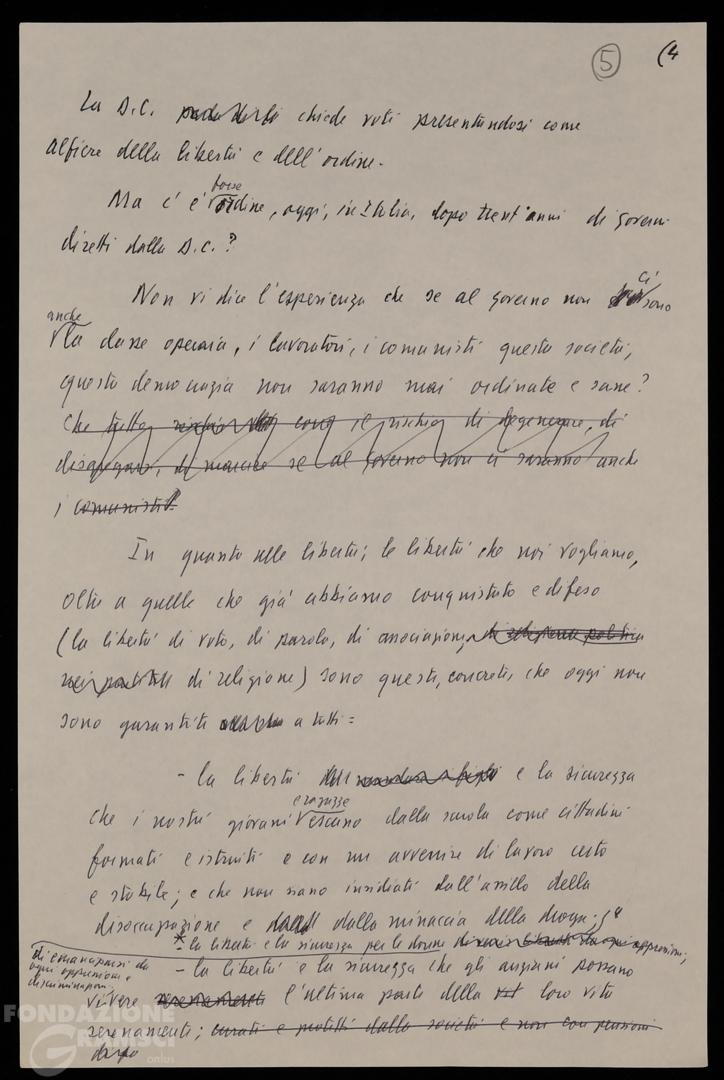 5 (4
La D.C. chiede voti presentandosi come
alfiere della libertà e dell'ordine.
forse
Ma c'è ordine, oggi, in Italia, dopo trent'anni di governi
diretti dalla D.C.?
ci
Non vi dice l'esperienza che se al governo non sono
anche
la classe operaia, i lavoratori, i comunisti questa società,
questa democrazia non saranno mai ordinate e sane?
che tutto così il rischio di degenerare, di
disgregarsi, di marcire se al governo non ci saranno anche
i comunisti?
In quanto alle libertà; le libertà che noi vogliamo,
oltre a quelle che già abbiamo conquistato e difeso
(la libertà di voto, di parola, di associazione,
di religione) sono queste, concrete, che oggi non
sono garantite a tutti:
- la libertà e la sicurezza
e ragazze
che i nostri giovani escano dalla scuola come cittadini
formati e istruiti e con un avvenire di lavoro certo
e stabile; e che non siano insidiati dall'assillo della
disoccupazione e dalla minaccia della droga;
* - la libertà e la sicurezza per le donne oppressioni;
di emanciparsi da
ogni oppressione e
discriminazione;
- la libertà e la sicurezza che gli anziani possano
vivere serenamente l'ultima parte della loro vita
serenamente; curati e protetti dalla società e non con pensioni
dopo
FONDAZIONE
GRAMSCI
onlus